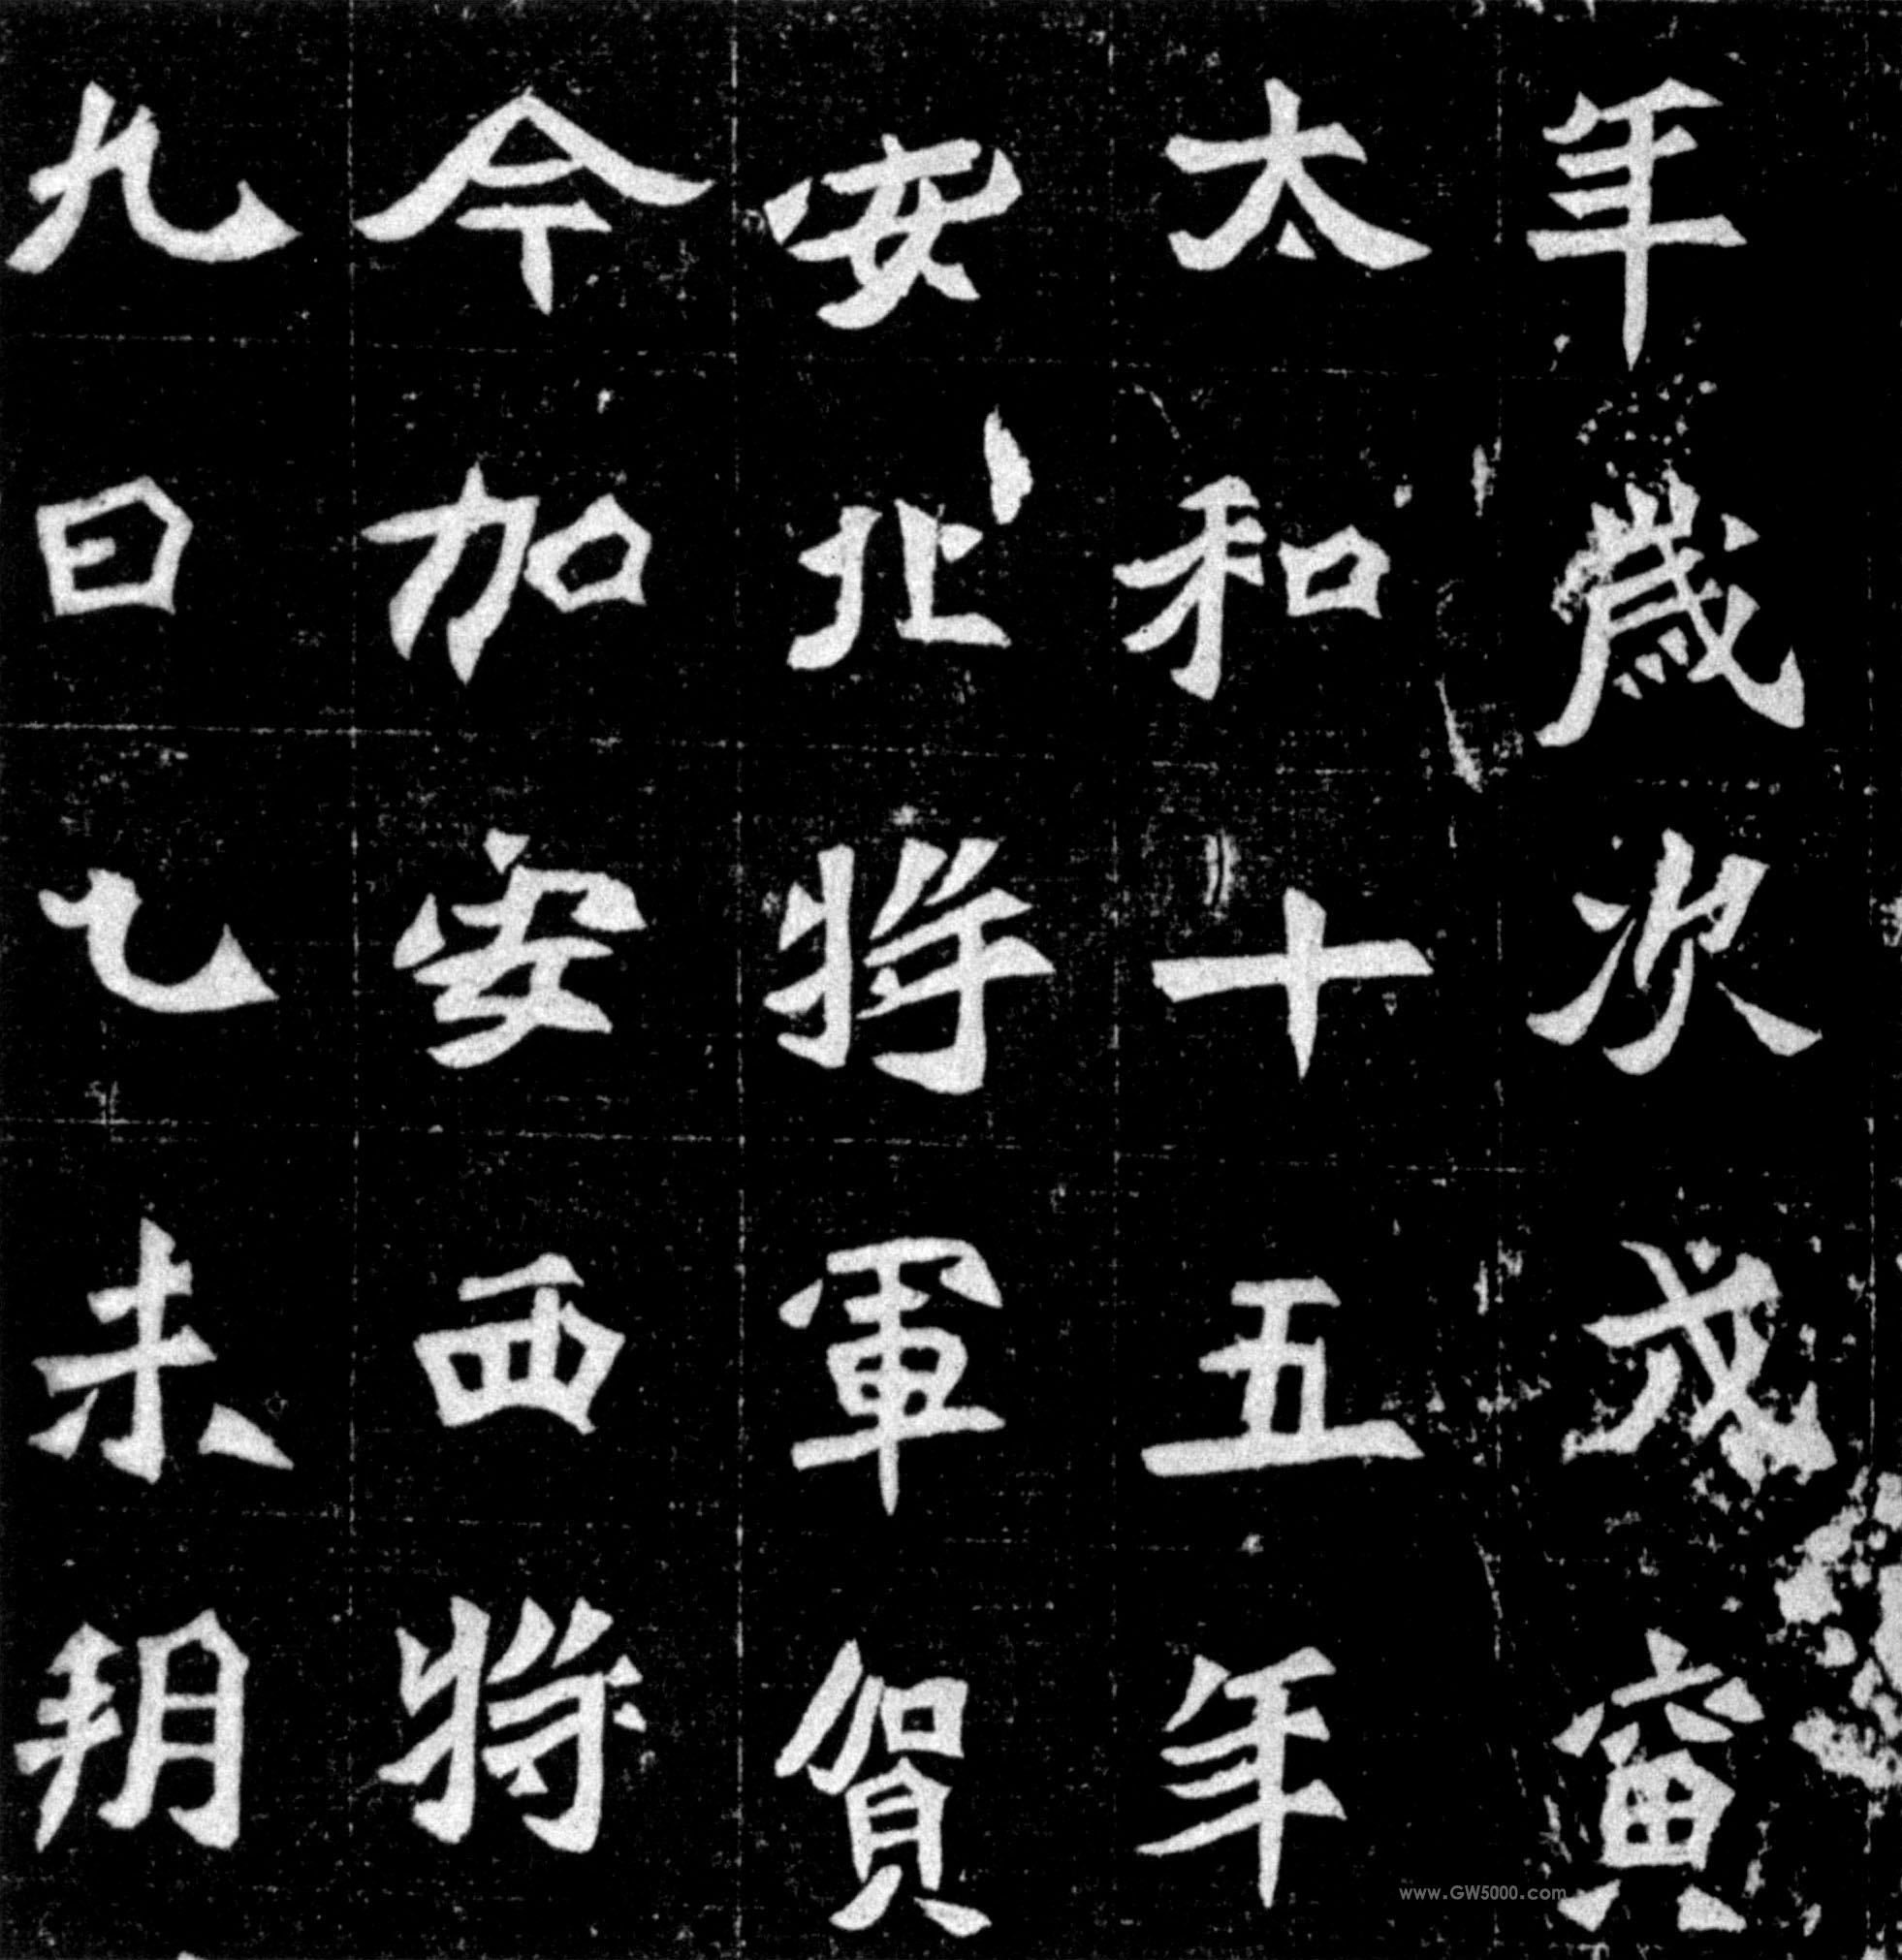 年歲次戊寅
太和十五年
安北將軍賀
今加安西將
九日乙未朔
www.GW5000.com